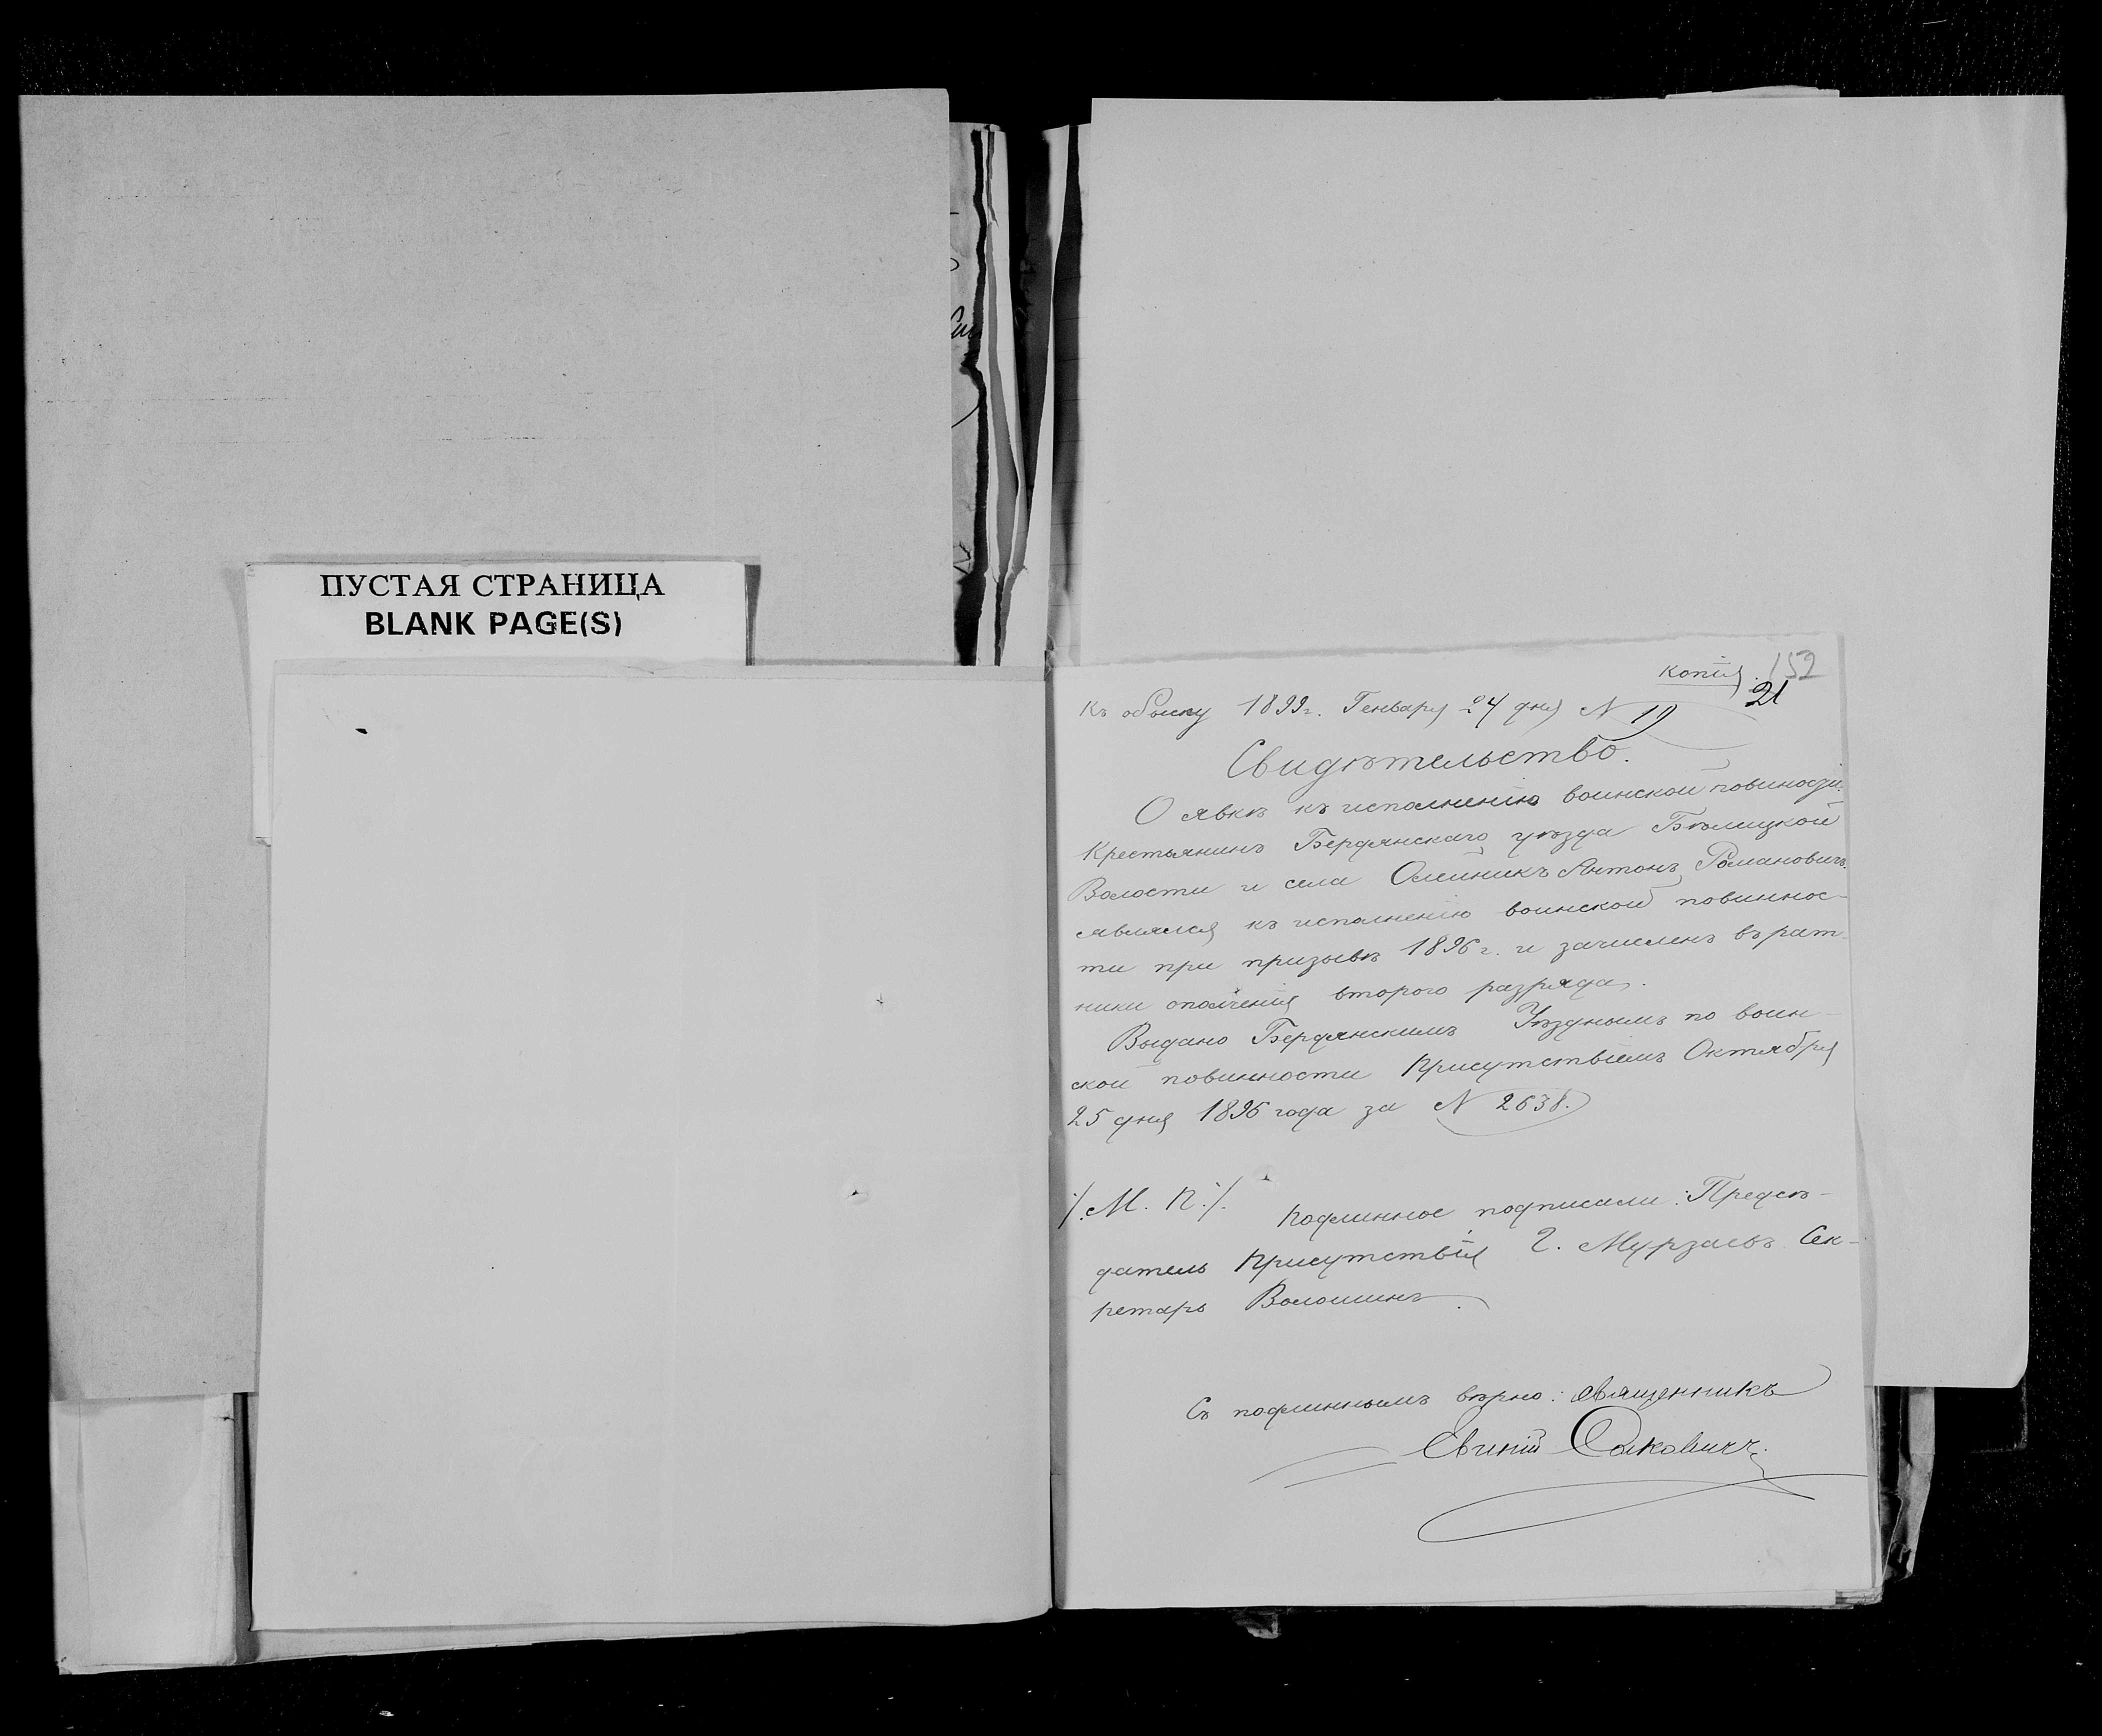 ПУСТАЯ СТРАНИЦА
BLANK PAGE(S)
копія
152
21
Къ обыску 1899г. Генваря 24 дня N 19
Свидѣтельство.
О явкѣ къ исполненію воинской повиности.
Крестьянинъ Бердянскаго уѣзда Бѣлицкой
Волости и села Олейникъ Антонъ Романовичъ
являлся къ исполненію воинской повиннос-
ти при призывѣ 1896 г. и зачисленъ въ рат-
ники ополченія второго разряда.
Выдано Бердянскимъ Уѣзднымъ по воин-
ской повинности Присутствіемъ Октября
25 дня 1896 года за N 2638.
/.М. П./. Подлинное подписали: Предсѣ-
датель Присутствія Г. Мурзаевъ Сек-
ретарь Волошинъ.
Съ подлиннымъ вѣрно: священникъ
Евгеній